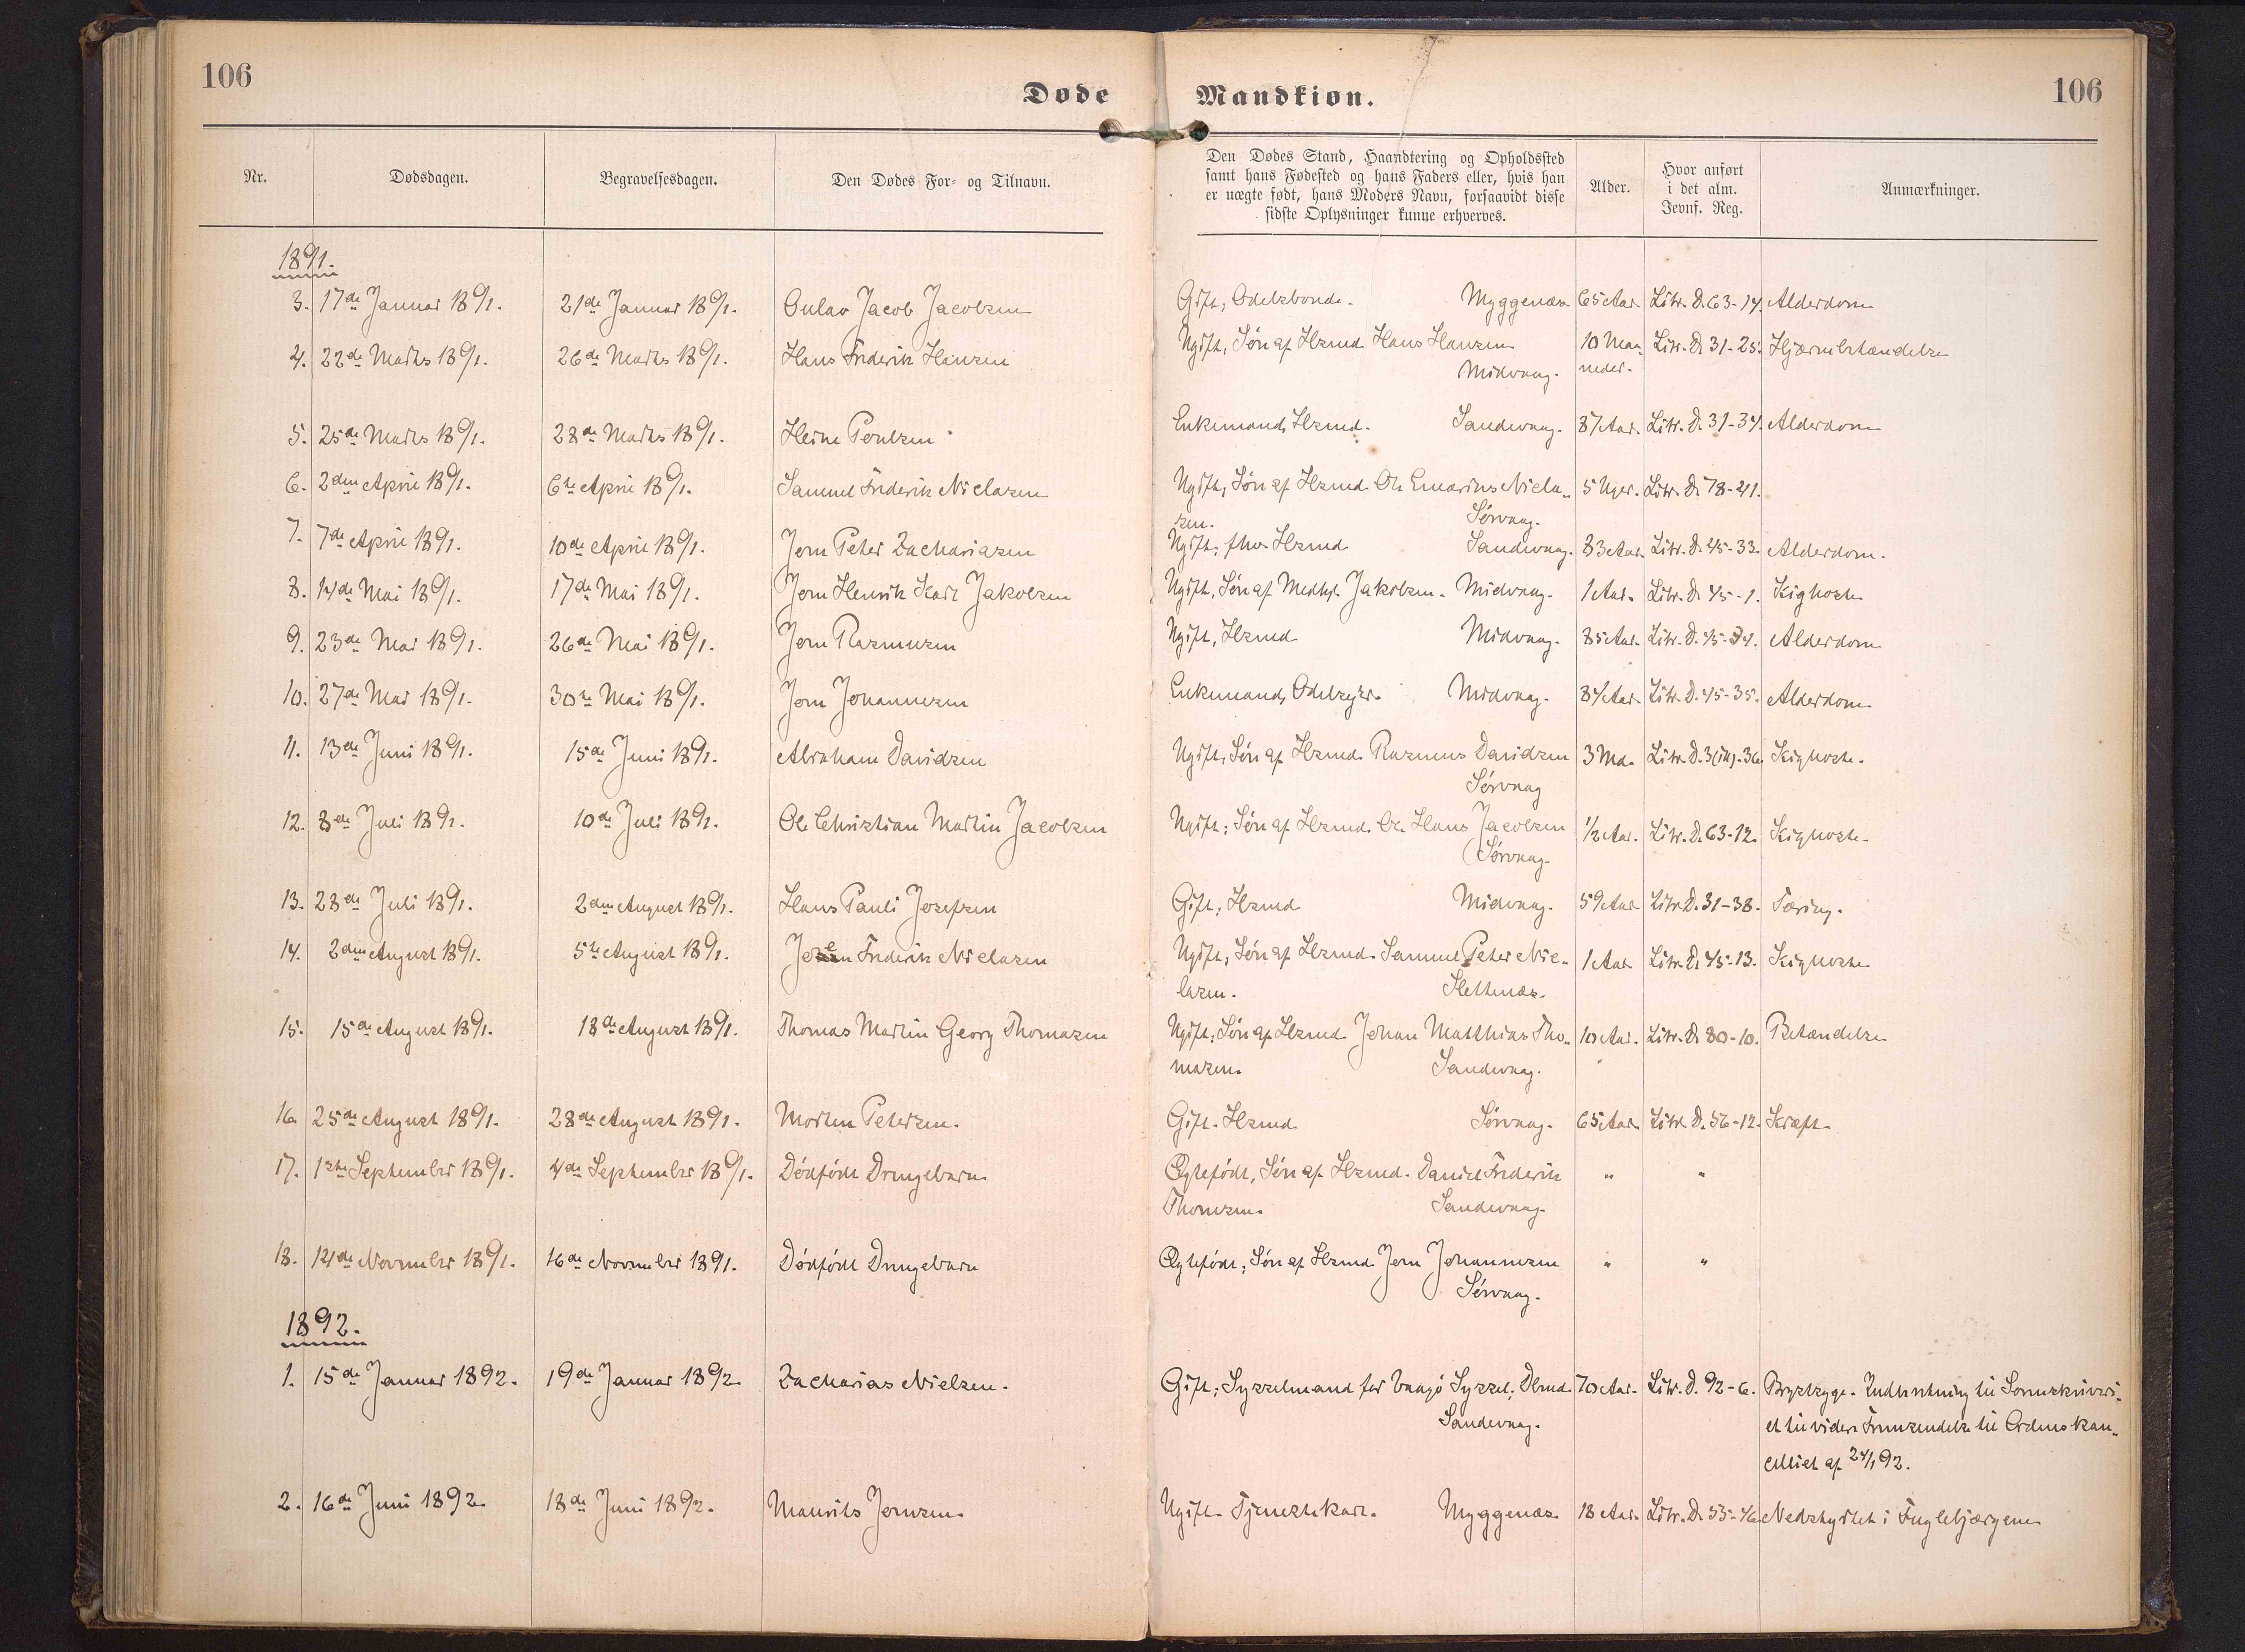 106
Døde Mandkiøn.
106
Nr. Dødsdagen. Begravelsesdagen. Den Dødes For- og Tilnavn. Den Dødes Stand, Haandtering og Opholdssted samt hans Fødested og hans Faders eller, hvis han er uægte født, hans Moders Navn, forsaavidt disse sidste Oplysninger kunne erhverves. Alder. Hvor anført i det alm. Jevnf. Reg. Anmærkninger.
1891.
3. 17de Januar 1891. 21de Januar 1891. Oulav Jacob Jacobsen Gift, Odelsbonde. Myggenæs 65 Aar. Litr. D. 63-14. Alderdom
4. 22de Marts 1891. 26de Marts 1891. Hans Frederik Hansen Ugift, Søn af Hsmd. Hans Hansen 10 Maa- Litr. D. 31-25. Hjærnebetændelse
Midvaag. neder.
5. 25de Marts 1891. 28de Marts 1891. Heine Poulsen Enkemand, Hsmd. Sandevaag. 87 Aar. Litr. D. 31-34. Alderdom
6. 2den April 1891. 6te April 1891. Samuel Frederik Nielasen Ugift, Søn af Hsmd. Ole Emarius Niela- 5 Uger. Litr. D. 78-21.
sen. Sørvaag.
7. 7de April 1891. 10de April 1891. Joen Peter Zachariasen Ugift, fhv. Hsmd. Sandevaag. 83 Aar. Litr. D. 45-33. Alderdom.
8. 14de Mai 1891. 17de Mai 1891. Joen Henrik Karl Jakobsen Ugift, Søn af Medhj. Jakobsen. Midvaag. 1 Aar. Litr. D. 45-1. Kighoste
9. 23de Mai 1891. 26de Mai 1891. Joen Rasmusen Ugift, Hsmd. Midvaag. 85 Aar. Litr. D. 45-34. Alderdom
10. 27de Mai 1891. 30te Mai 1891. Joen Johannesen Enkemand, Odelsejer. Midvaag. 84 Aar. Litr. D. 45-35. Alderdom
11. 13de Juni 1891. 15de Juni 1891. Abraham Davidsen Ugift, Søn af Hsmd. Rasmus Davidsen 3 Md. Litr. D. 3 -36. Kighoste.
Sørvaag
12. 8de Juli 1891. 10de Juli 1891. Ole Christian Martin Jacobsen Ugift; Søn af Hsmd. Ole Hans Jacobsen 1/2 Aar. Litr. D. 63-12. Kighoste
Sørvaag.
13. 28de Juli 1891. 2den August 1891. Hans Pauli Josefsen Gift, Hsmd. Midvaag. 59 Aar. Litr. D. 31-38. Tæring.
14. 2den August 1891. 5te August 1891. Frederik Nielasen Ugift, Søn af Hsmd. Samuel Peter Nie- 1 Aar Litr. D. 45-13. Kighoste
lasen. Slettenæs.
15. 15de August 1891. 18de August 1891. Thomas Martin Georg Thomasen Ugift; Søn af Hsmd. Johan Matthias Tho- 10 Aar. Litr. D. 80-10. Betændelse
masen. Sandevaag.
16. 25de August 1891. 28de August 1891. Morten Petersen. Gift. Hsmd. Sørvaag. 65 Aar. Litr. D. 56-12. Kræft
17. 1ste September 1891. 4de September 1891. Dødfødt Drengebarn Ægtefødt, Søn af Hsmd. Daniel Frederik " "
Thomsen. Sandevaag.
18. 14de November 1891. 16de November 1891. Dødfødt Drengebarn Ægtefødt; Søn af Hsmd. Joen Johannesen " "
Sørvaag.
1892.
1. 15de Januar 1892. 19de Januar 1892. Zacharias Nielsen. Gift; Sysselmand for Vaagø Syssel, Dbmd. 70 Aar. Litr. D. 92-6. Brystsyge. Indberetning til Sorenskriveri-
Sandevaag. et til videre Fremsendelse til Ordenskan-
celliet af 24/1 92.
2. 16de Juni 1892. 18de Juni 1892. Maurits Joensen. Ugift. Tjenestekarl. Myggenæs 18 Aar. Litr. D. 55-46. Nedstyrtet i Fuglebjærgene